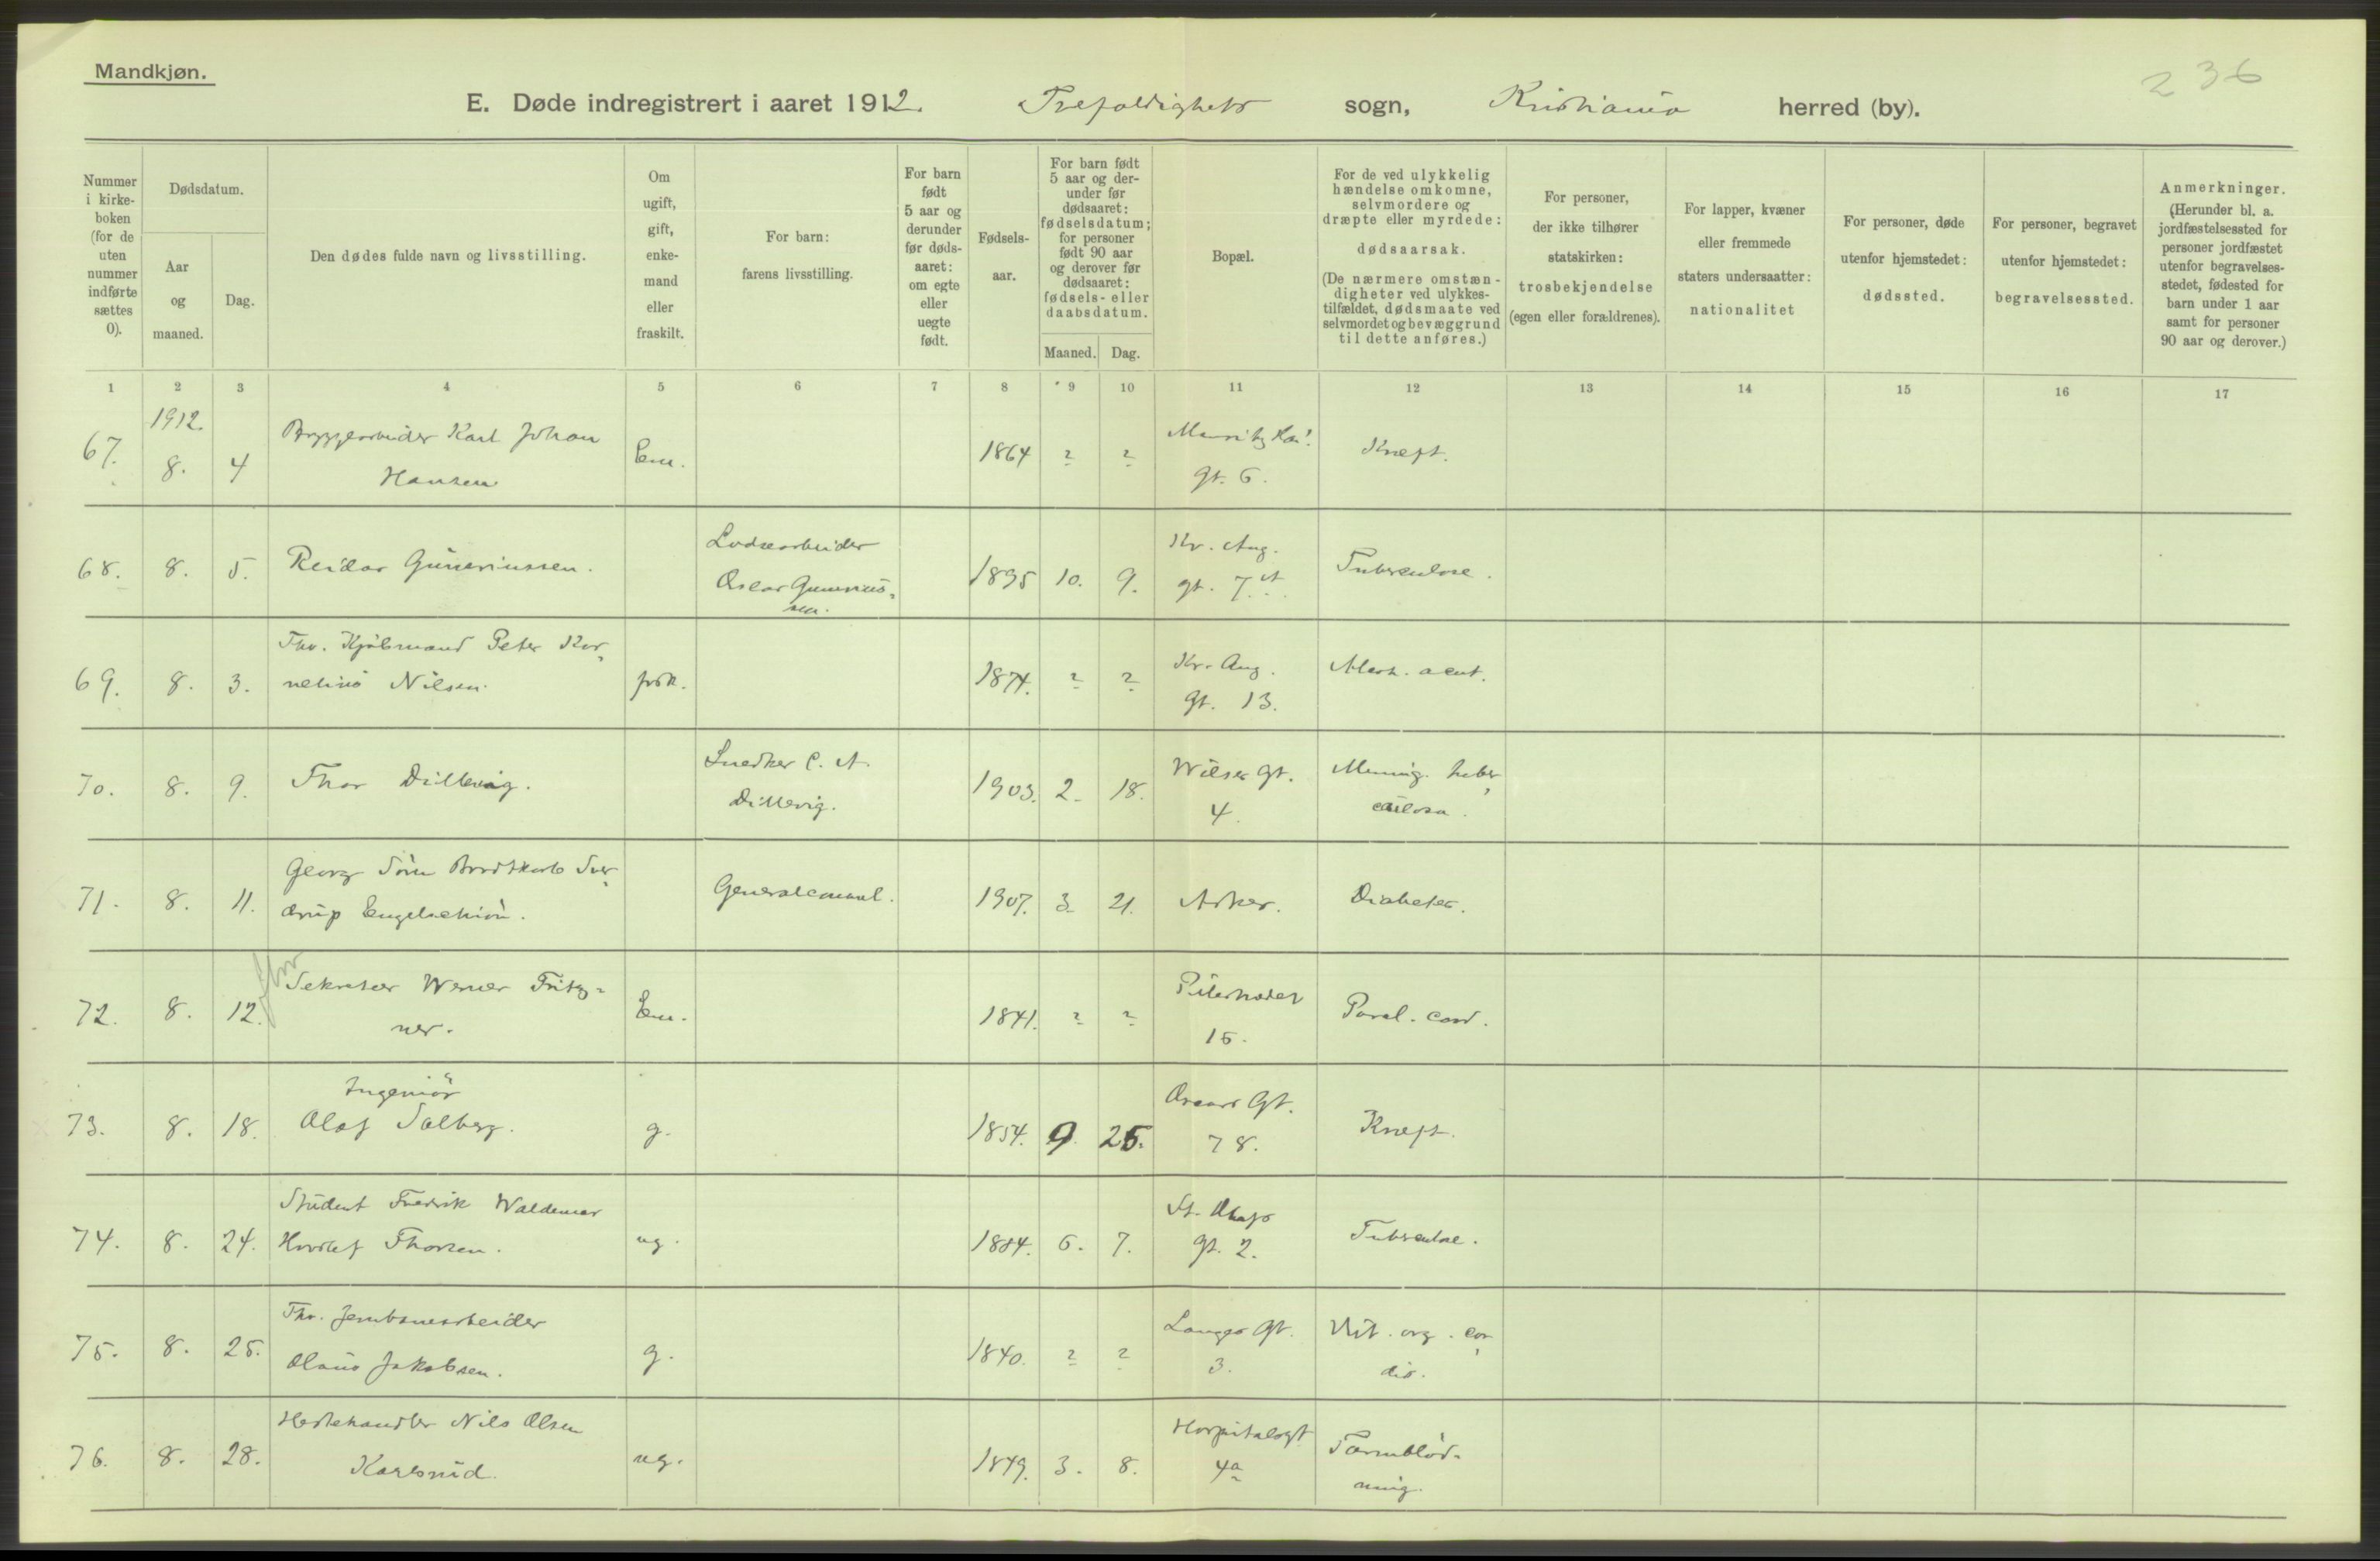 Mandkjøn.
236
E. Døde indregistrert i aaret 1912. Trefoldigheds sogn, Kristiania herred (by).
Nummer i kirke-boken (for de uten nummer indførte sættes 0).
Dødsdatum.
Aar og maaned.
Dag.
Den dødes fulde navn og livsstilling.
Om ugift, gift, enke-mand eller fraskilt.
For barn: farens livsstilling.
For barn født 5 aar og derunder før døds-aaret: om egte eller uegte født.
Fødsels-aar.
For barn født 5 aar og der-under før dødsaaret: fødselsdatum; for personer født 90 aar og derover før dødsaaret: fødsels- eller daabsdatum.
Maaned. Dag.
Bopæl.
For de ved ulykkelig hændelse omkomne, selvmordere og dræpte eller myrdede: dødsaarsak. (De nærmere omstæn-digheter ved ulykkes-tilfældet, dødsmaate ved selvmordet og bevæggrund til dette anføres.)
For personer, der ikke tilhører statskirken: trosbekjendelse (egen eller forældrenes).
For lapper, kvæner eller fremmede staters undersaatter: nationalitet
For personer, døde utenfor hjemstedet: dødssted.
For personer, begravet utenfor hjemstedet: begravelsessted.
Anmerkninger. (Herunder bl. a. jordfæstelsessted for personer jordfæstet utenfor begravelses-stedet, fødested for barn under 1 aar samt for personer 90 aar og derover.)
1 2 3 4 5 6 7 8 9 10 11 12 13 14 15 16 17
1912.
67. 8. 4 Bryggearbeider Karl Johan Hansen Em. 1864 ? ? gt. 6. Kræft.
68. 8. 5. Reidar Guneriussen. Lodsearbeider Oscar Gunerius-sen. 1895 10. 9. Kr. Aug. gt. 7 A Tuberculose.
69. 8. 3. Fhv. Kjøbmand Peter Kor-nelius Nilsen. frsk. 1874. ? ? Kr. Aug. gt. 13. acut.
70. 8. 9. Thor Dillevig. Snedker C. A. Dillevig. 1903. 2. 18. Wilses Gt. 4. Mening. tuber-culosa.
71. 8. 11. Georg Sörn Brodtkorb Sver-drup Engelschiøn. Generalconsul. 1907. 3. 21. Asker. Diabetes.
72. 8. 12. fhv Sekretær Werner Fritz-ner. Em. 1841. ? ? Pilestrædet 15. Paral. cord.
73. 8. 18. Ingeniör Olaf Solberg. g. 1854. 9. 25. Oscars Gt. 78. Kræft.
74. 8. 24. Student Fredrik Waldemar Thorsen. ug. 1884. 6. 7. St. Olafs gt. 2. Tuberculose.
75. 8. 25. Fhv. Jernbanearbeider Olaus Jakobsen. g. 1840. ? ? Langes Gt. 3. Vit. org. cor-dis.
76. 8. 28. Hestehandler Nils Olsen Karlsrud. ug. 1849. 3. 8. Hospitalsgt 4a Tarmblöd-ning.